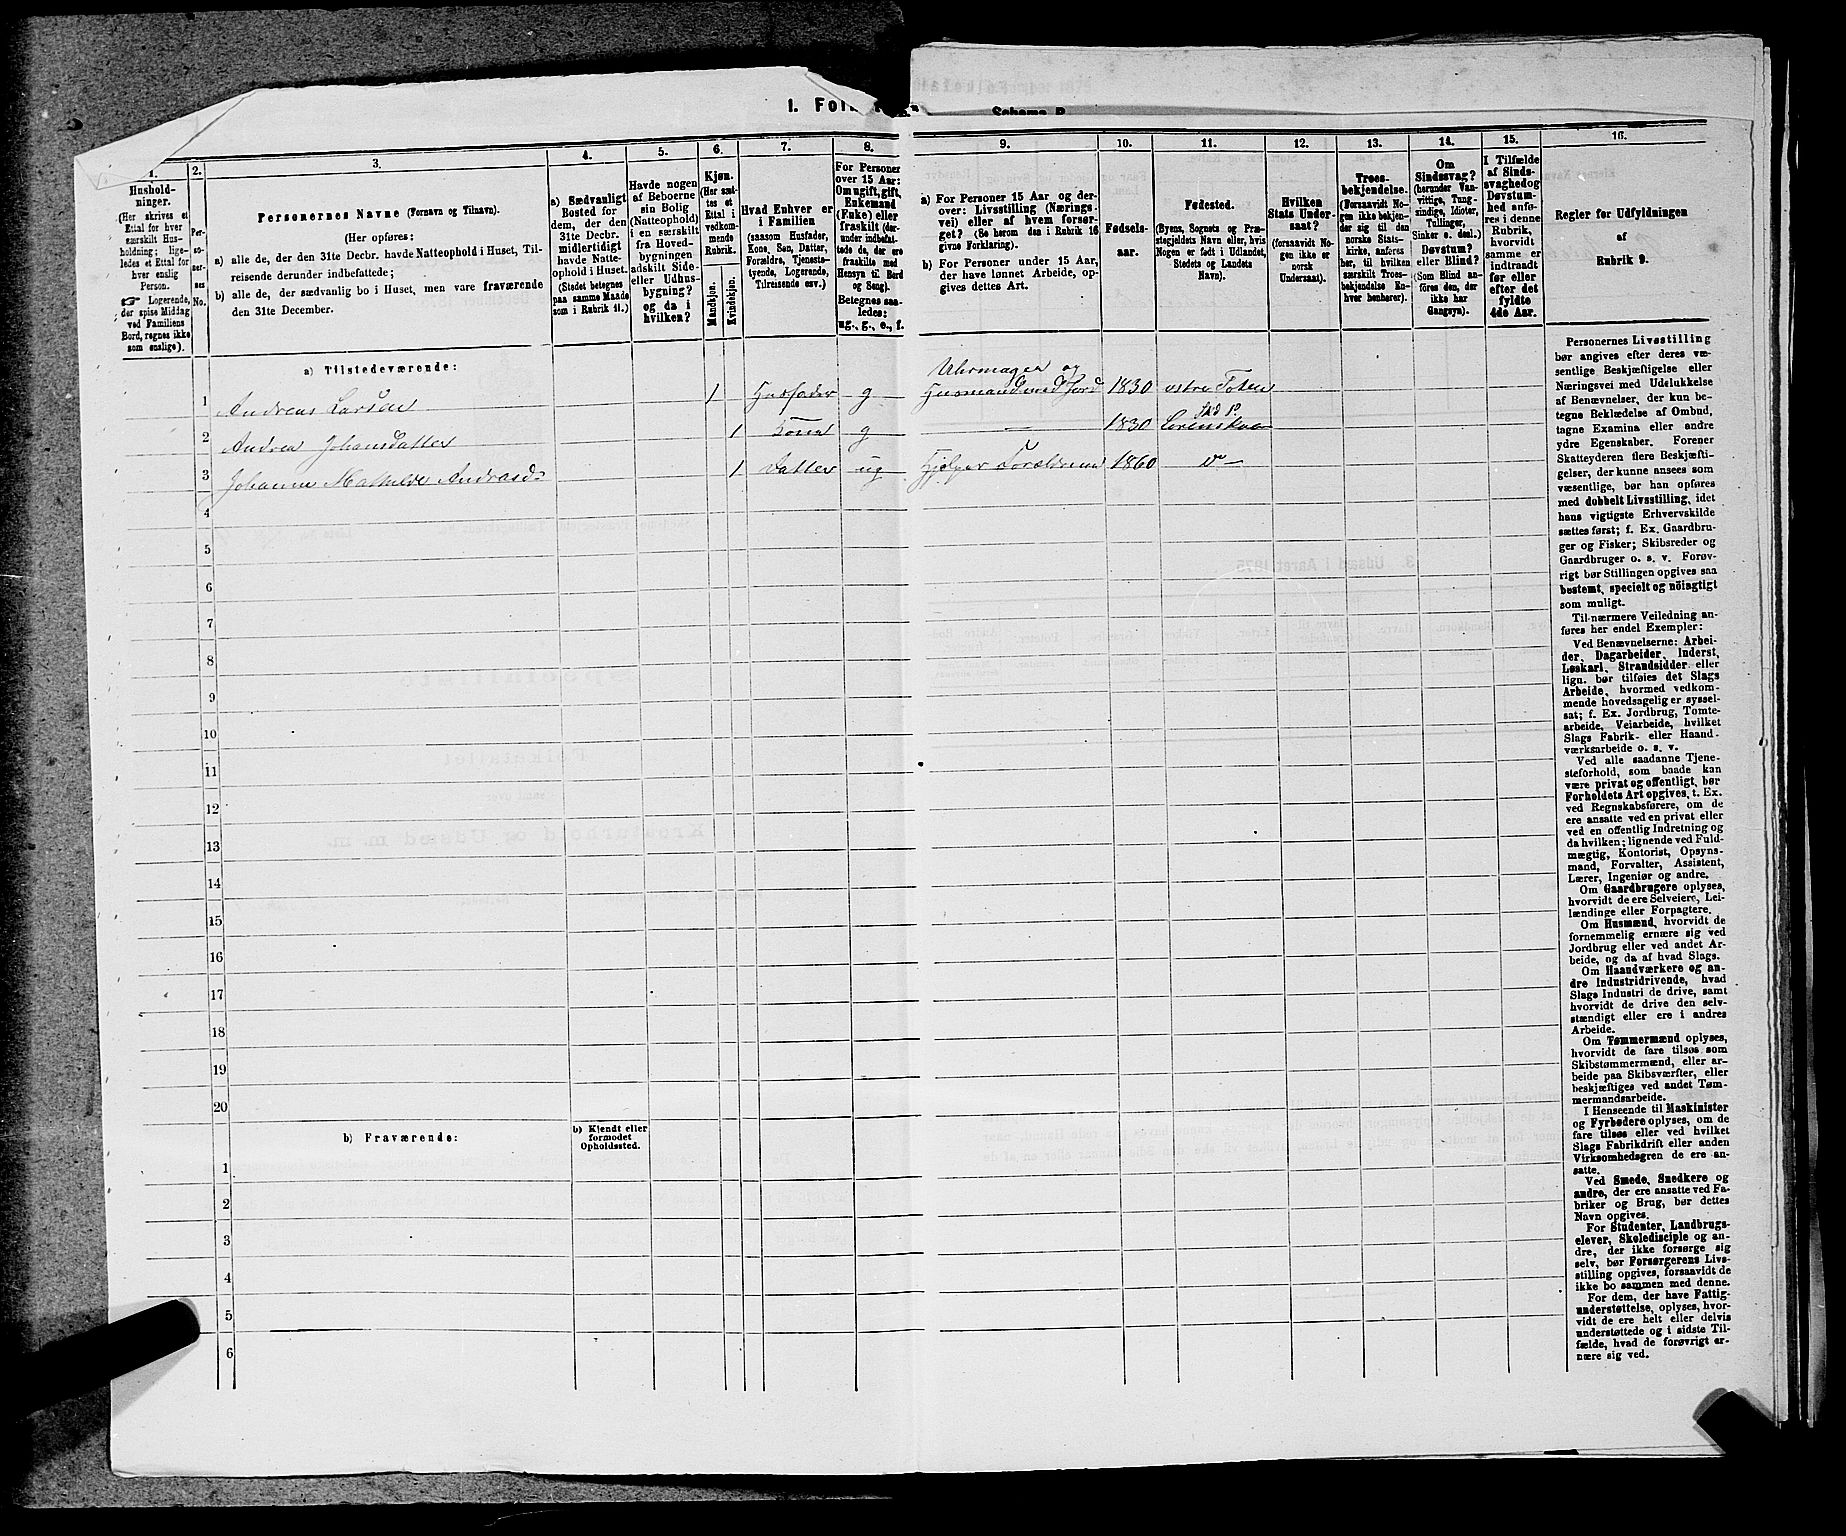 1. Fol
Schema B
1.
Hushold-
ninger.
(Her skrives et
Ettal for hver
særskilt Hus-
holdning; lige-
ledes et Ettal for
hver enslig
Person.
☞ Logerende,
der spise Middag
ved Familiens
Bord, regnes ikke
som enslige).
2.
Per-
so-
ner-
nes
No.
3.
Personernes Navne (Fornavn og Tilnavn).
(Her opføres:
a) alle de, der den 31te Decbr. havde Natteophold i Huset, Til-
reisende derunder indbefattede;
b) alle de, der sædvanlig bo i Huset, men vare fraværende
den 31te December.
4.
a) Sædvanligt
Bosted for
dem, der den
31te Decbr.
midlertidigt
havde Natte-
ophold i Huset.
(Stedet betegnes
paa samme Maade
som i Rubrik 11.)
5.
Havde nogen
af Beboerne
sin Bolig
(Natteophold)
i en særskilt
fra Hoved-
bygningen
adskilt Side-
eller Udhus-
bygning?
og da i
hvilken?
6.
Kjøn.
(Her sæt-
tes et
Ettal i
vedkom-
mende
Rubrik.
Mandkjøn.
Kvindekjøn.
7.
Hvad Enhver er
i Familien
(saasom Husfader,
Kone, Søn, Datter,
Forældre, Tjeneste-
tyende, Logerende,
Tilreisende osv.)
8.
For Personer
over 15 Aar:
Om ugift, gift,
Enkemand
(Enke) eller
fraskilt (der-
under indbefat-
tede de, der ere
fraskilte med
Hensyn til Bord
og Seng).
Betegnes saa-
ledes:
ug., g., e., f.
9.
a) For Personer 15 Aar og der-
over: Livsstilling (Nærings-
vei) eller af hvem forsør-
get? (Se herom den i Rubrik 16
givne Forklaring).
b) For Personer under 15 Aar,
der have lønnet Arbeide, op-
gives dettes Art.
10.
Fødsels-
aar.
11.
Fødested.
(Byens, Sognets og Præ-
stegjeldets Navn eller, hvis
Nogen er født i Udlandet,
Stedets og Landets
Navn).
12.
Hvilken
Stats Under-
saat?
(forsaavidt No-
gen ikke er
norsk
Undersaat).
13.
Troes-
bekjendelse.
(Forsaavidt No-
gen ikke bekjen-
der sig til den
norske Stats-
kirke, anføres
her, til hvilken
særskilt Troes-
bekjendelse En-
hver henhører).
14.
Om
Sindssvag?
(herunder Van-
vittige, Tung-
sindige, Idioter,
Tullinger,
Sinker o. desl.)
Døvstum?
eller Blind?
(Som Blind an-
føres den, der
ikke har
Gangsyn).
15.
I Tilfælde
af Sinds-
svaghed og
Døvstum-
hed anfø-
res i denne
Rubrik,
hvorvidt
samme er
indtraadt
før eller
efter det
fyldte
4de Aar.
16.
Regler for Udfyldningen
af
Rubrik 9.
a) Tilstedeværende:
Uhrmager og
1 Andreas Larsen 1 Husfader g Husmand med Jord 1830 østre Toten
2 Andrea Johansdatter 1 Kone g — 1830 Lørenskov
3 Johanne Mathilde Andreasd: 1 Datter ug Hjelper Forældrene 1860 do —
4
5
6
7
8
9
10
11
12
13
14
15
16
17
18
19
20
b) Fraværende:
b) Kjendt eller
formodet
Opholdssted.
1
2
3
4
5
6
Personernes Livsstilling
bør angives efter deres væ-
sentlige Beskjæftigelse eller
Næringsvei med Udelukkelse
af Benævnelser, der kun be-
tegne Beklædelse af Ombud,
tagne Examina eller andre
ydre Egenskaber. Forener
Skatteyderen flere Beskjæfti-
gelser, der kunne ansees som
væsentlige, bør han opføres
med dobbelt Livsstilling, idet
hans vigtigste Erhvervskilde
sættes først; f. Ex. Gaardbru-
ger og Fisker; Skibsreder og
Gaardbruger o. s. v. Forøv-
rigt bør Stillingen opgives saa
bestemt, specielt og nöiagtigt
som muligt.
Til nærmere Veiledning an-
føres her endel Exempler:
Ved Benævnelserne: Arbei-
der, Dagarbeider, Inderst,
Løskarl, Strandsidder eller
lign. bør tilføies det Slags
Arbeide, hvormed vedkom-
mende hovedsagelig er syssel-
sat; f. Ex. Jordbrug, Tomte-
arbeide, Veiarbeide, hvilket
Slags Fabrik- eller Haand-
værksarbeide o. s. v.
Ved alle saadanne Tjene-
steforhold, som baade kan
være privat og offentligt, bør
Forholdets Art opgives, t. Ex.
ved Regnskabsførere, om de
ere ansatte ved en privat eller
ved en offentlig Indretning og
da hvilken; lignende ved Fuld-
mægtig, Kontorist, Opsyns-
mand, Forvalter, Assistent,
Lærer, Ingeniør og andre.
Om Gaardbrugere oplyses,
hvorvidt de ere Selveiere, Lei-
lændinge eller Forpagtere.
Om Husmænd, hvorvidt de
fornemmelig ernære sig ved
Jordbrug eller ved andet Ar-
beide, og da af hvad Slags.
Om Haandværkere og an-
dre Industridrivende, hvad
Slags Industri de drive, samt
hvorvidt de drive den selv-
stændigt eller ere i andres
Arbeide.
Om Tømmermænd oplyses,
hvorvidt de fare tilsøs som
Skibstømmermænd, eller ar-
beide paa Skibsværfter, eller
beskjæftiges ved andet Tøm-
mermandsarbeide.
I Henseende til Maskinister
og Fyrbødere oplyses, om de
fare tilsøs eller ved hvilket
Slags Fabrikdrift eller anden
Virksomhedsgren de ere an-
satte.
Ved Smede, Snedkere og
andre, der ere ansatte ved Fa-
briker og Brug, bør dettes
Navn opgives.
For Studenter, Landbrugs-
elever, Skoledisciple og an-
dre, der ikke forsørge sig
selv, bør Forsørgerens Livs-
stilling opgives, forsaavidt de
ikke bo sammen med denne.
For dem, der have Fattig-
understøttelse, oplyses, hvor-
vidt de ere helt eller delvis
understøttede og i sidste Til-
fælde, hvad de forøvrigt er-
nære sig ved.